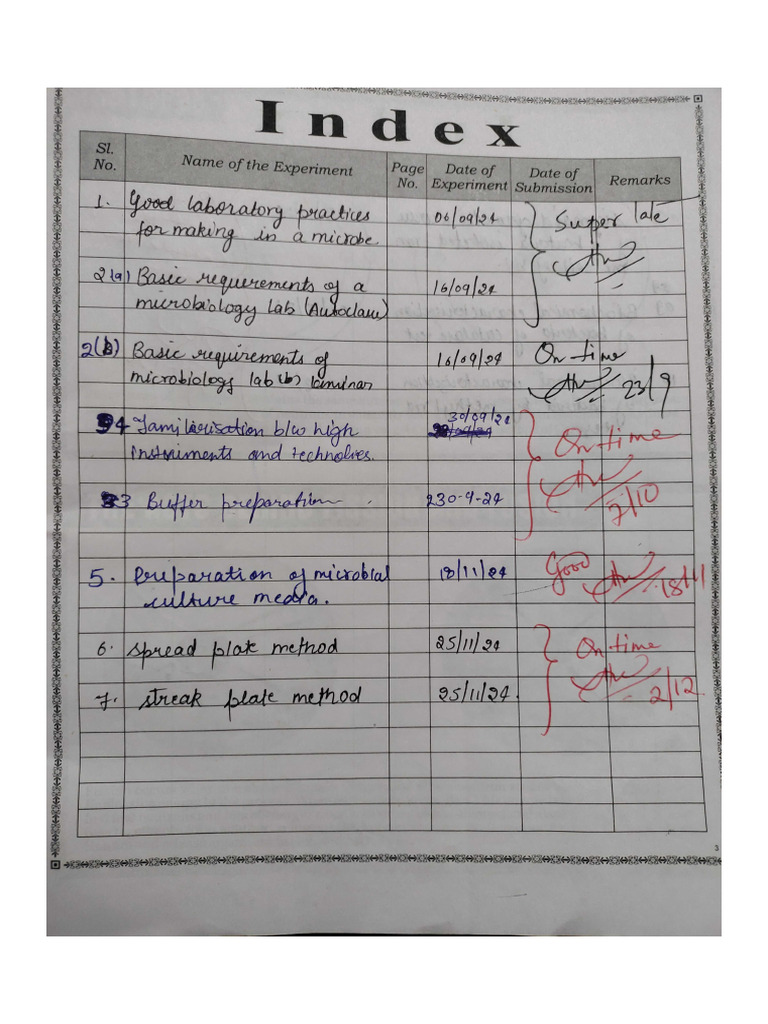 Index
Sl. No. Name of the Experiment Page No. Date of Experiment Date of Submission Remarks
1. Good laboratory practices 06/09/24 Super late
for making in a microbe.
2(a) Basic requerements of a 16/09/24
microbiology lab (Autoclave)
2(b) Basic requirements of 16/09/24 On time
microbiology lab (b) laminar 23/9
4 Familiarisation b/w high 30/09/24 On time
instruments and technolies.
3 Buffer preparation. 30-9-24 7/10
5. Preparation of microbial 18/11/24 Good 18/11
culture media.
6. Spread plate method 25/11/24 On time
7. Streak plate method 25/11/24. 2/12
3